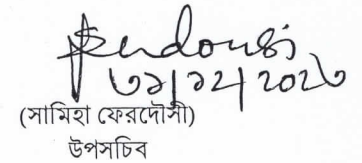 Ferdousi
৩১/১২/২০২৩
(সামিহা ফেরদৌসী)
উপসচিব